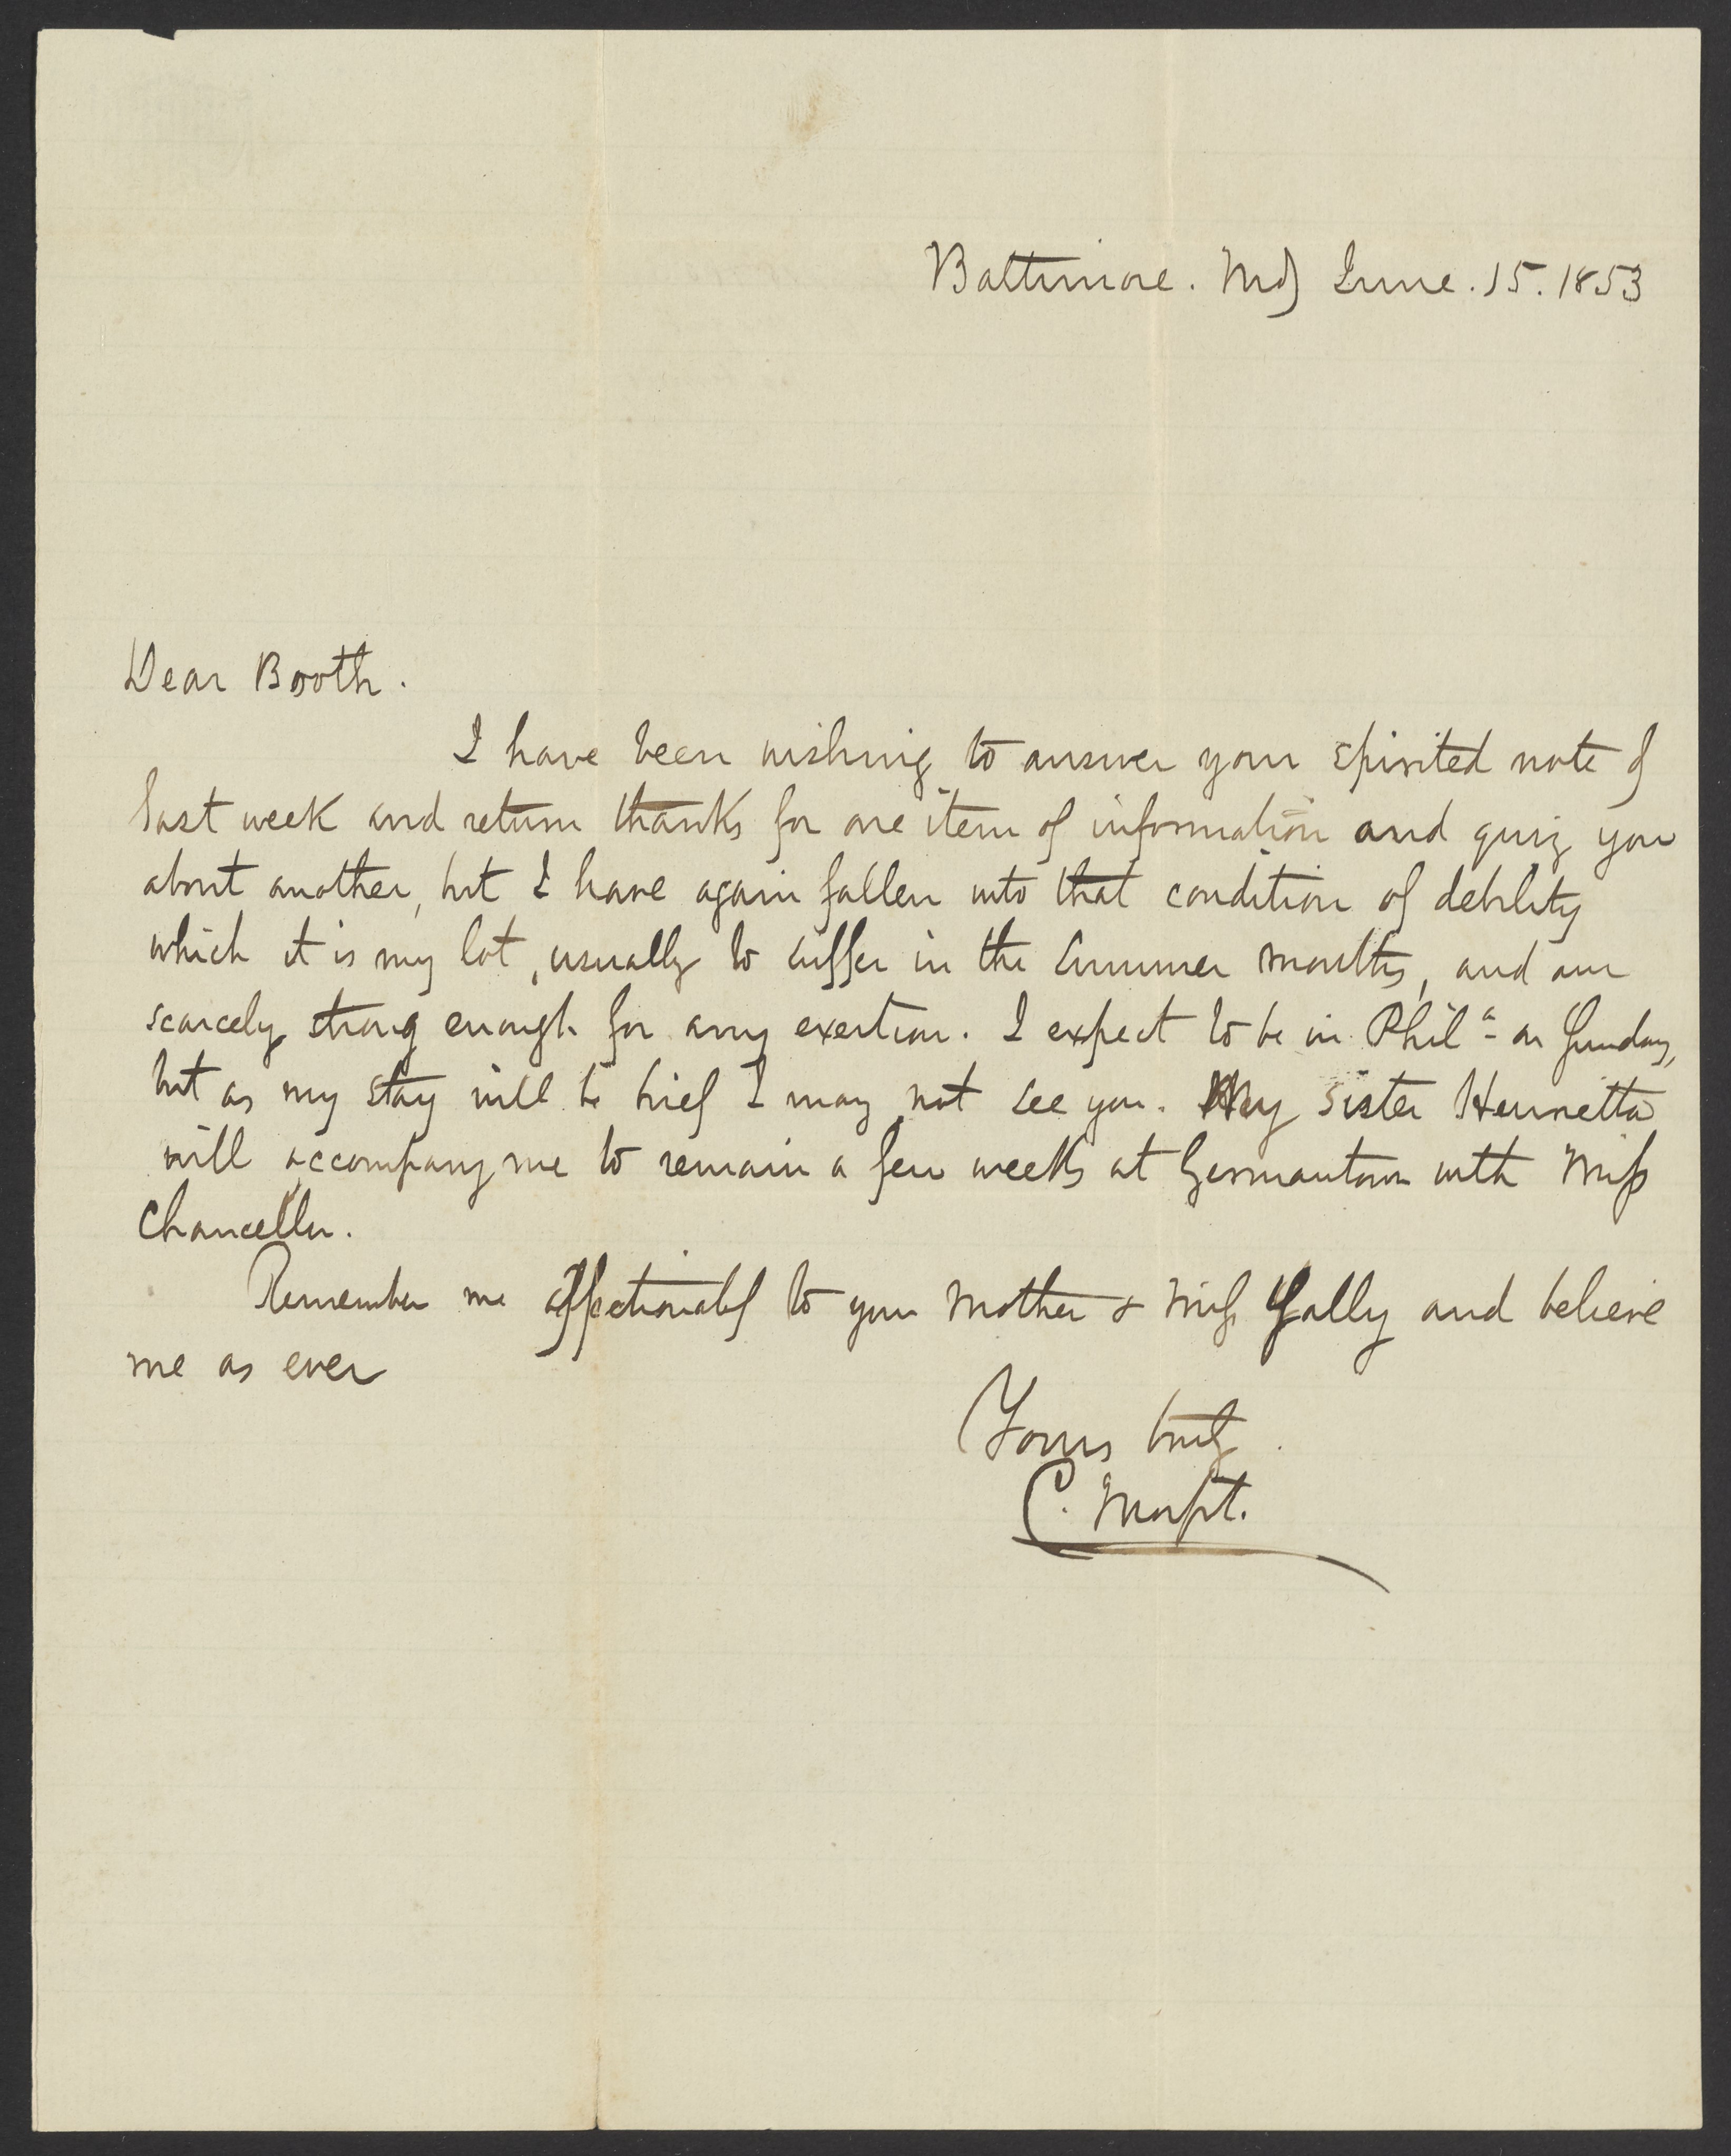 Baltimore. Md) June. 15. 1853
Dear Booth.
I have been wishing to answer your spirited note of
last week and return thanks for one item of information and quiz you
about another, but I have again fallen into that condition of debility
which it is my lot, usually to suffer in the Summer months, and am
scarcely strong enough for any exertion. I expect to be in Phila on Sunday,
but as my stay will be brief I may not see you. My sister Henrietta
will accompany me to remain a few weeks at Germantown with Miss
Chancellor.
Remember me affectionately to your Mother & Miss Sally and believe
me as ever
Yours truly.
C. Morfit.